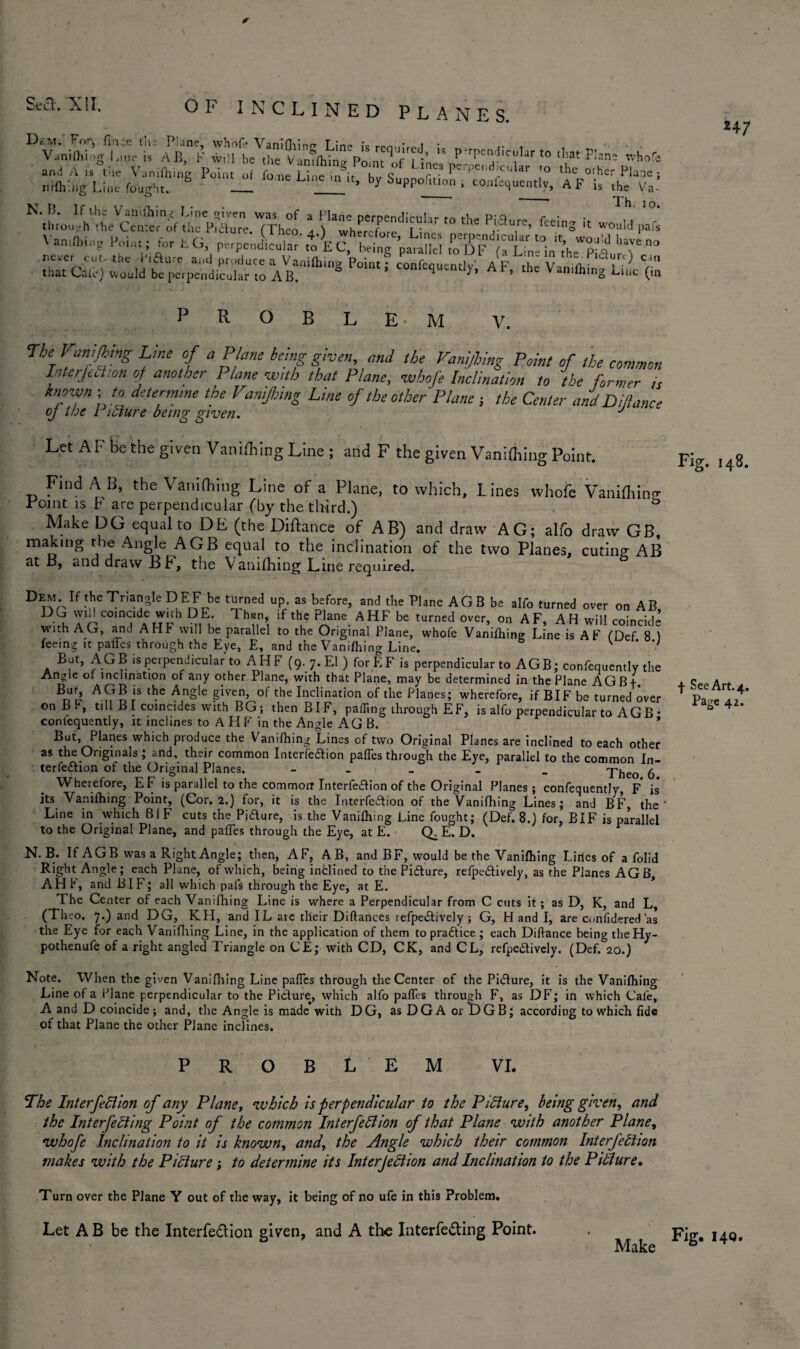 Sect. XII.
OF INCLINED PLANES.
247
Dem. For, since the Plane, whose Vanishing Line is required, is perpendicular to that Plane whose
Vanishing Line is AB, F will be the Vanishing Point of Lines perpendicular to the other Plane;
and A is the Vanishing Point of some Line in it, by Supposition; consequently, AF is the Va-
nishing Line sought.
Th. 10.
N. B. If the Vanishing Line given was of a Plane perpendicular to the Picture, seeing it would pass
through the Center of the Picture. (Theo. 4.) wherefore, Lines perpendicular to it, would have no
Vanishing Point; for EG, perpendicular to EC, being parallel to DF (a Line in the Picture) can
never cut the Picture and produce a Vanishing Point; consequently, AF, the Vanishing Line (in
that Case) would be perpendicular to AB.
PROBLEM V.
The Vanishing Line of a Plane being given, and the Vanishing Point of the common
Intersection of another Plane with that Plane, whose Inclination to the former is
known; to determine the Vanishing Line of the other Plane; the Center and Distance
of the Picture being given.
Let AF be the given Vanishing Line; and F the given Vanishing Point.
Fig. 148.
Find AB, the Vanishing Line of a Plane, to which, Lines whose Vanishing
Point is F are perpendicular (by the third.)
Make DG equal to DE (the Distance of AB) and draw AG; also draw GB,
making the Angle AGB equal to the inclination of the two Planes, cuting AB
at B, and draw BF, the Vanishing Line required.
Dem. If the Triangle DEF be turned up, as before, and the Plane AGB be also turned over on AB,
DG will coincide with DE. Then, if the Plane AHF be turned over, on AF, AH will coincide
with AG, and AHF will be parallel to the Original Plane, whose Vanishing Line is AF (Def. 8.)
seeing it passes through the Eye, E, and the Vanishing Line.
But, AGB is perpendicular to AHF (9. 7. El) for EF is perpendicular to AGB; consequently the
Angle of inclination of any other Plane, with that Plane, may be determined in the Plane AGB†.
† See Art. 4.
Page 42.
But, AGB is the Angle given, of the Inclination of the Planes; wherefore, if BIF be turned over
on BF, till BI coincides with BG; then BIF, passing through EF, is also perpendicular to AGB;
consequently, it inclines to AHF in the Angle AGB.
But, Planes which produce the Vanishing Lines of two Original Planes are inclined to each other
as the Originals; and, their common Intersection passes through the Eye, parallel to the common In-
tersection of the Original Planes. - - - - - Theo. 6.
Wherefore, EF is parallel to the common Intersection of the Original Planes; consequently, F is
its Vanishing Point, (Cor. 2.) for, it is the Intersection of the Vanishing Lines; and BF, the
Line in which BIF cuts the Picture, is the Vanishing Line sought; (Def. 8.) for, BIF is parallel
to the Original Plane, and passes through the Eye, at E. Q. E. D.
N. B. If AGB was a Right Angle; then, AF, AB, and BF, would be the Vanishing Lines of a solid
Right Angle; each Plane, of which, being inclined to the Picture, respectively, as the Planes AGB,
AHF, and BIF; all which pass through the Eye, at E.
The Center of each Vanishing Line is where a Perpendicular from C cuts it; as D, K, and L,
(Theo. 7.) and DG, KH, and IL are their Distances respectively; G, H and I, are considered as
the Eye for each Vanishing Line, in the application of them to practice; each Distance being the Hy-
pothenuse of a right angled Triangle on CE; with CD, CK, and CL, respectively. (Def. 20.)
Note. When the given Vanishing Line passes through the Center of the Picture, it is the Vanishing
Line of a Plane perpendicular to the Picture, which also passes through F, as DF; in which Case,
A and D coincide; and, the Angle is made with DG, as DGA or DGB; according to which side
of that Plane the other Plane inclines.
PROBLEM VI.
The Intersection of any Plane, which is perpendicular to the Picture, being given, and
the Intersecting Point of the common Intersection of that Plane with another Plane,
whose Inclination to it is known, and, the Angle which their common Intersection
makes with the Picture; to determine its Intersection and Inclination to the Picture.
Turn over the Plane Y out of the way, it being of no use in this Problem.
Let AB be the Intersection given, and A the Intersecting Point.
Fig. 149.
Make